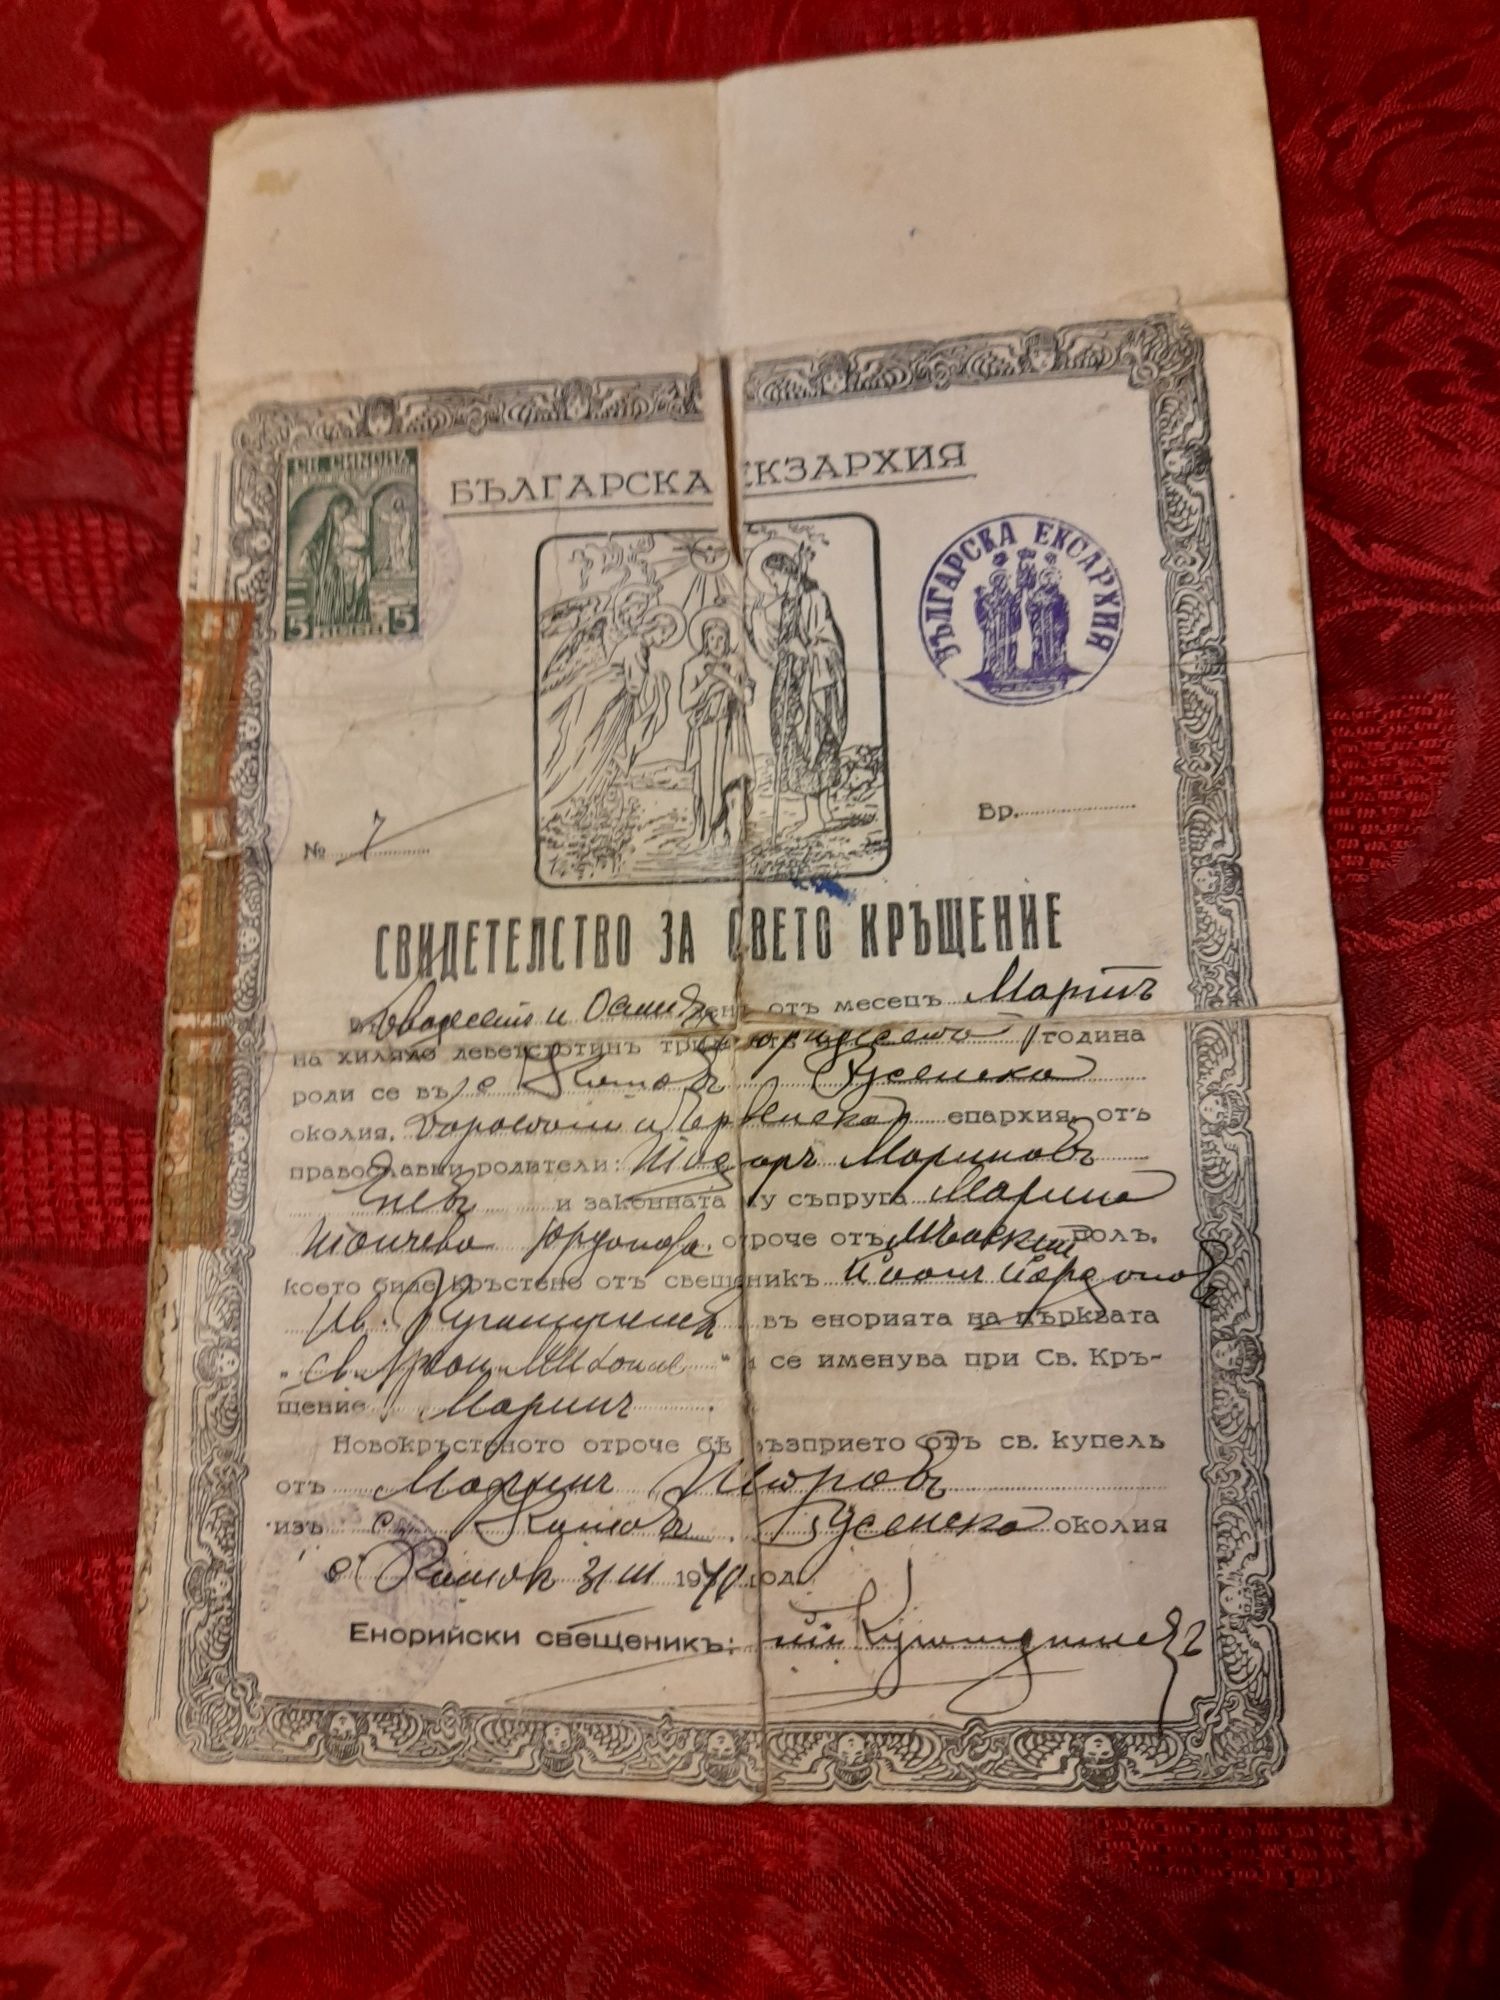 СВ. СИНОДЪ
5 ЛЕВА 5
БЪЛГАРСКА ЕКЗАРХИЯ
БЪЛГАРСКА ЕКСАРХИЯ
№ 7
Бр.
СВИДЕТЕЛСТВО ЗА СВЕТО КРЪЩЕНИЕ
Двадесет и Осми день отъ месецъ Мартъ
на хилядо деветстотинъ година
роди се въ с Русенска
околия, и Червенска епархия, отъ
православни родители: Тодоръ Мариновъ
и законната му съпруга Марина
Тончева Юрданова отроче отъ Мъжкий полъ,
което биде кръстено отъ свещеникъ
Ив. въ енорията на църквата
„Св. “ и се именува при Св. Кръ-
щение Маринъ
Новокръстеното отроче бѣ възприето отъ св. купель
отъ Маринъ
изъ с. Русенска околия
с 31 III 1940 год.
Енорийски свещеникъ: